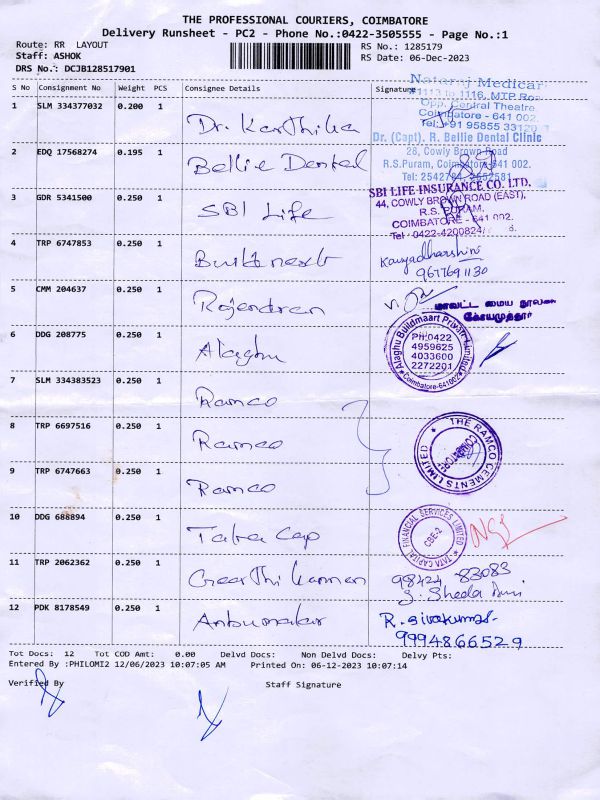 THE PROFESSIONAL COURIERS, COIMBATORE
Delivery Runsheet - PC2 - Phone No.:0422-3505555 - Page No.:1
Route: RR LAYOUT
Staff: ASHOK
DRS No.: DCJB128517901
RS No.: 1285179
RS Date: 06-Dec-2023
S No Consignment No Weight PCS Consignee Details Signature
1 SLM 334377032 0.200 1 Dr. Karthika
Nataraj Medical
#1113 to 1116, MTP Road
Opp. Central Theatre
Coimbatore - 641 002.
Tel: +91 95855 33120
2 EDQ 17568274 0.195 1 Bellie Dental
Dr. (Capt). R. Bellie Dental Clinic
26, Cowly Brown Road
R.S.Puram, Coimbatore-641 002.
3 GDR 5341500 0.250 1 SBI Life
SBI LIFE INSURANCE CO. LTD.
44, COWLY BROWN ROAD (EAST),
R.S. PURAM,
COIMBATORE - 641 002.
Tel 0422-4200824/
4 TRP 6747853 0.250 1 Buildnext
Kavyadharshini
9677691130
5 CMM 204637 0.250 1 Rajendran
மாவட்ட மைய நூலகம்
கோயமுத்தூர்
6 DDG 208775 0.250 1 Alaghu
Alaghu Buildmaart Private Limited
PH:0422
4959625
4033600
2272201
Coimbatore-641002
7 SLM 334383523 0.250 1 Ramco
8 TRP 6697516 0.250 1 Ramco
THE RAMCO CEMENTS LIMITED
COIMBATORE
9 TRP 6747663 0.250 1 Ramco
10 DDG 688894 0.250 1 Tata Cap
TATA CAPITAL FINANCIAL SERVICES LIMITED
CBE-2
11 TRP 2062362 0.250 1 Geerthi Kannan
98424 83083
12 PDK 8178549 0.250 1 Anbumalar
R. Sivakumar
9994866529
Tot Docs: 12 Tot COD Amt: 0.00 Delvd Docs: Non Delvd Docs: Delvy Pts:
Entered By :PHILOMI2 12/06/2023 10:07:05 AM Printed On: 06-12-2023 10:07:14
Verified By Staff Signature